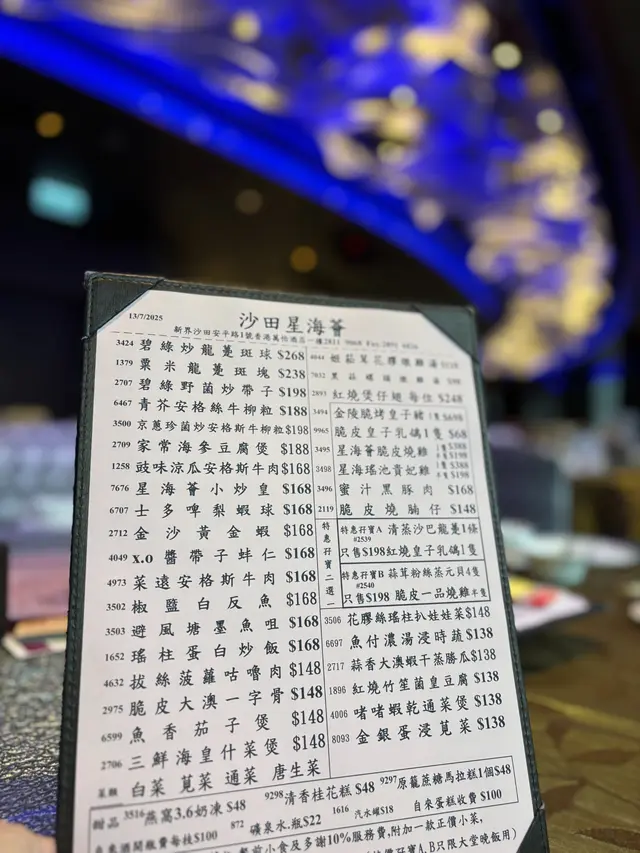 13/7/2025
沙田星海薈
新界沙田安平路1號香港萬怡酒店一樓2811
3424 碧綠炒龍躉斑球 $268
1379 粟米龍躉斑塊 $238
2707 碧綠野菌炒帶子 $198
6467 青芥安格絲牛柳粒 $188
3500 京蔥珍菌炒安格斯牛柳粒 $198
2709 家常海參豆腐煲 $188
1258 豉味涼瓜安格斯牛肉 $168
7676 星海薈小炒皇 $168
6707 士多啤梨蝦球 $168
2712 金沙黃金蝦 $168
4049 x.o 醬帶子蚌仁 $168
4973 菜遠安格斯牛肉 $168
3502 椒鹽白反魚 $168
3503 避風塘墨魚咀 $168
1652 瑤柱蛋白炒飯 $168
4632 拔絲菠蘿咕嚕肉 $148
2975 脆皮大澳一字骨 $148
6599 魚香茄子煲 $148
2706 三鮮海皇什菜煲 $148
菜類 白菜 莧菜 通菜 唐生菜
4044 姬菇茸花膠燉雞湯
7032
2893 紅燒煲仔翅 每位 $248
3494 金陵脆烤皇子豬 1隻$698
9965 脆皮皇子乳鴿1隻 $68
3495 星海薈脆皮燒雞 1隻$388 半隻$198
3498 星海瑤池貴妃雞 1隻$388 半隻$198
3496 蜜汁黑豚肉 $168
2119 脆皮燒腩仔 $148
特惠孖寶二選一
特惠孖寶A 清蒸沙巴龍躉1條
#2539
只售$198紅燒皇子乳鴿1隻
特惠孖寶B 蒜茸粉絲蒸元貝4隻
#2540
只售$198 脆皮一品燒雞半隻
3506 花膠絲瑤柱扒娃娃菜 $148
6697 魚付濃湯浸時蔬 $138
2717 蒜香大澳蝦干蒸勝瓜 $138
1896 紅燒竹笙菌皇豆腐 $138
4006 啫啫蝦乾通菜煲 $138
8093 金銀蛋浸莧菜 $138
甜品 3516 燕窩3.6奶凍 $48 9298 清香桂花糕 $48 9297 原籠蔗糖馬拉糕1個$48
自來酒開瓶費每枝$100 872 礦泉水.瓶$22 1616 汽水罐$18 自來蛋糕收費 $100
餐前小食及多謝10%服務費,附加一款正價小菜,
孖寶A,B只限大堂晚飯用)